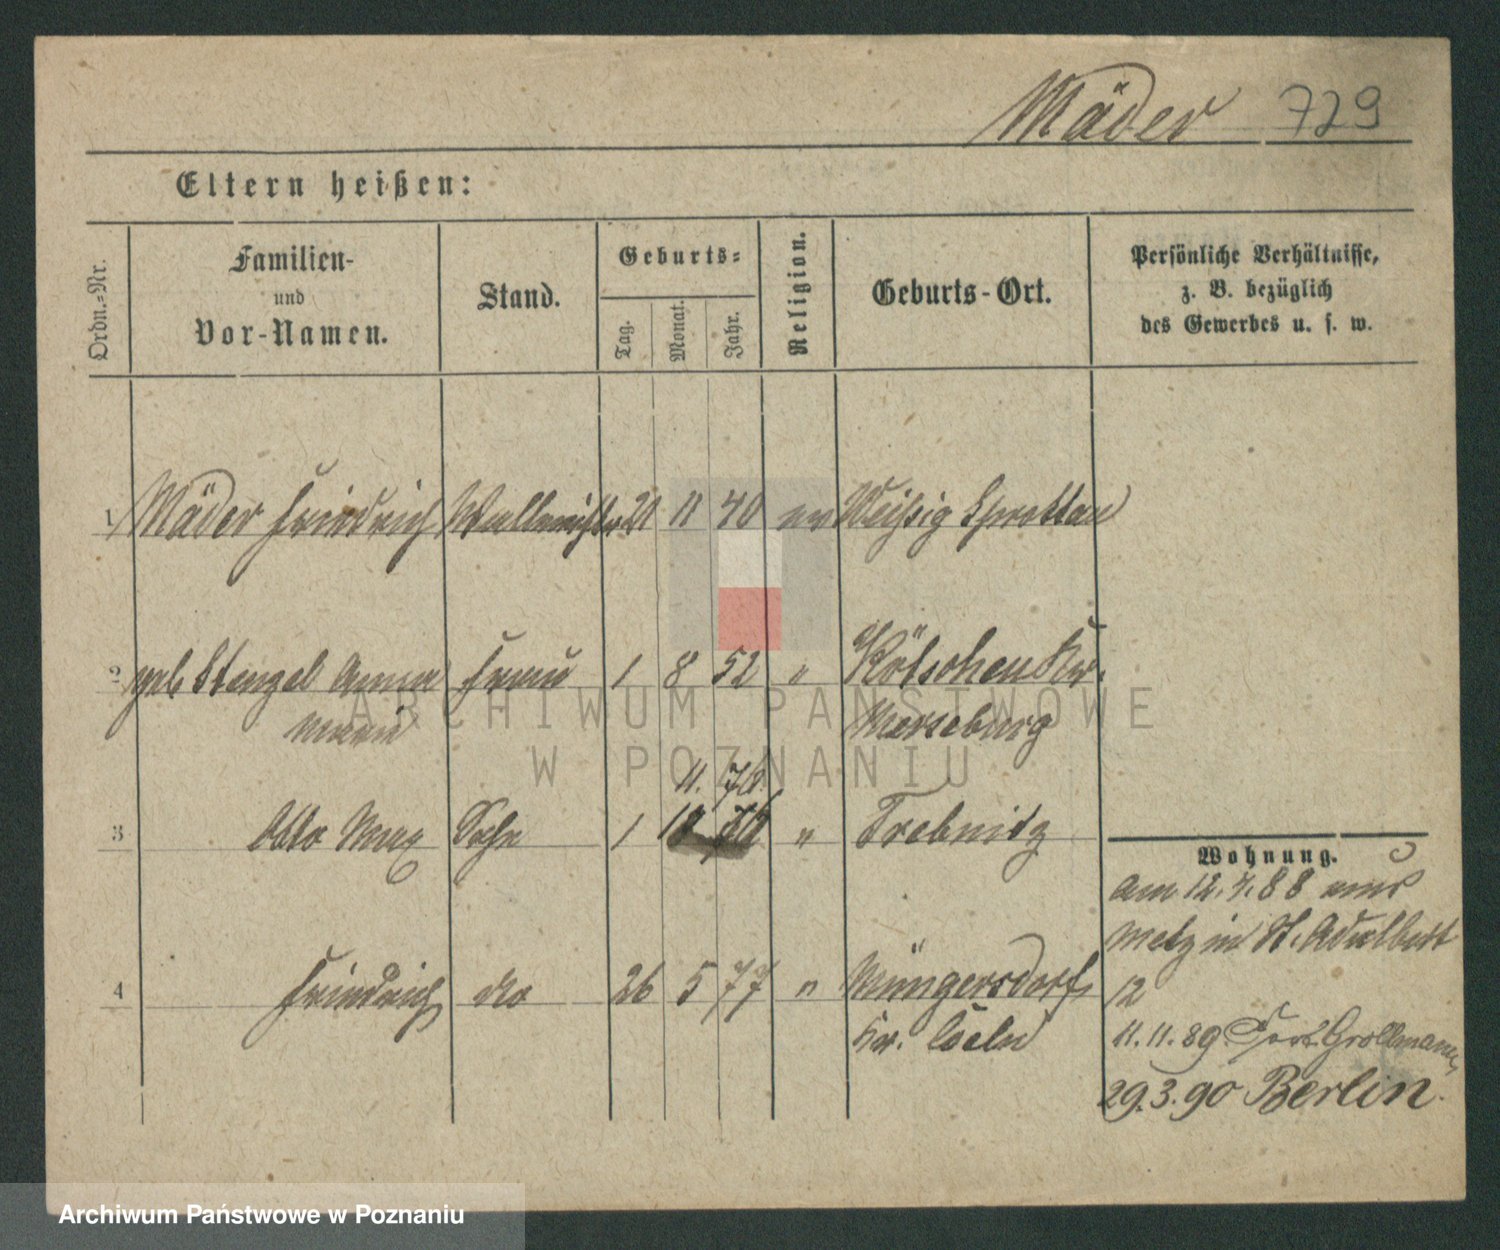 Mäder 729
Eltern heißen:
Ordn.=Nr.
Familien-
und
Vor-Namen.
Stand.
Geburts=
Tag.
Monat.
Jahr.
Religion.
Geburts-Ort.
Persönliche Verhältnisse,
z. B. bezüglich
des Gewerbes u. s. w.
1 Mäder Friedrich Wallmeister 20 11 40 ev Weißig Sprottau
2 geb Stengel Anna Frau 1 8 52 " Kötschen Kr.
Marie Merseburg
11. 76
3 Otto Max Sohn 1 " Trebnitz
4 Friedrich do 26 5 77 " Müngersdorf
Kr. Coeln
Wohnung.
am 12.4.88 aus
Metz in St. Adalbert
12
11.11.89 Fort Grollmann
29.3.90 Berlin.
ARCHIWUM PAŃSTWOWE
W POZNANIU
Archiwum Państwowe w Poznaniu